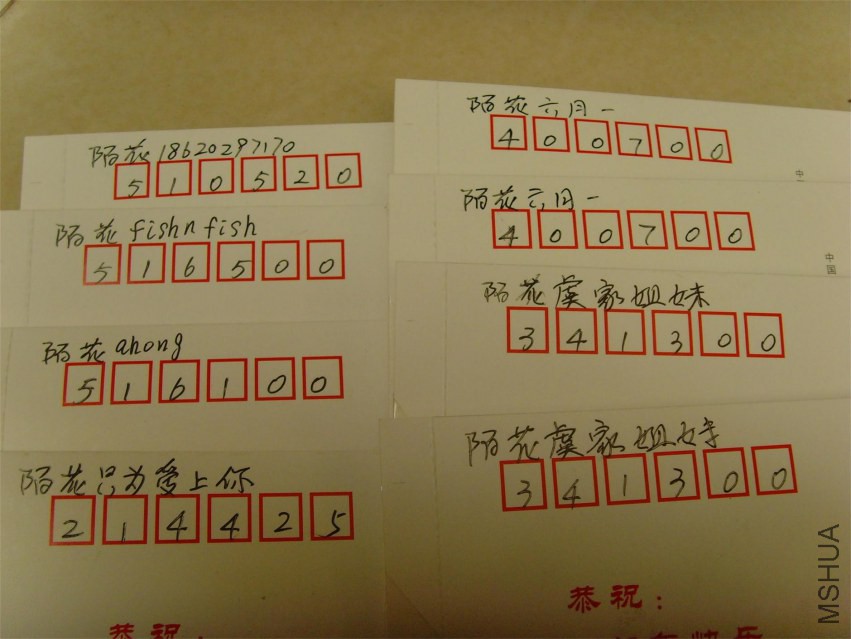 陌花18620297170
510520
陌花 fishn fish
516500
陌花 ahong
516100
陌花只为爱上你
214425
恭祝:
陌花六月一
400700
陌花六月一
400700
中国
陌花虞家姐妹
341300
陌花虞家姐妹
341300
恭祝:
快乐
MSHUA